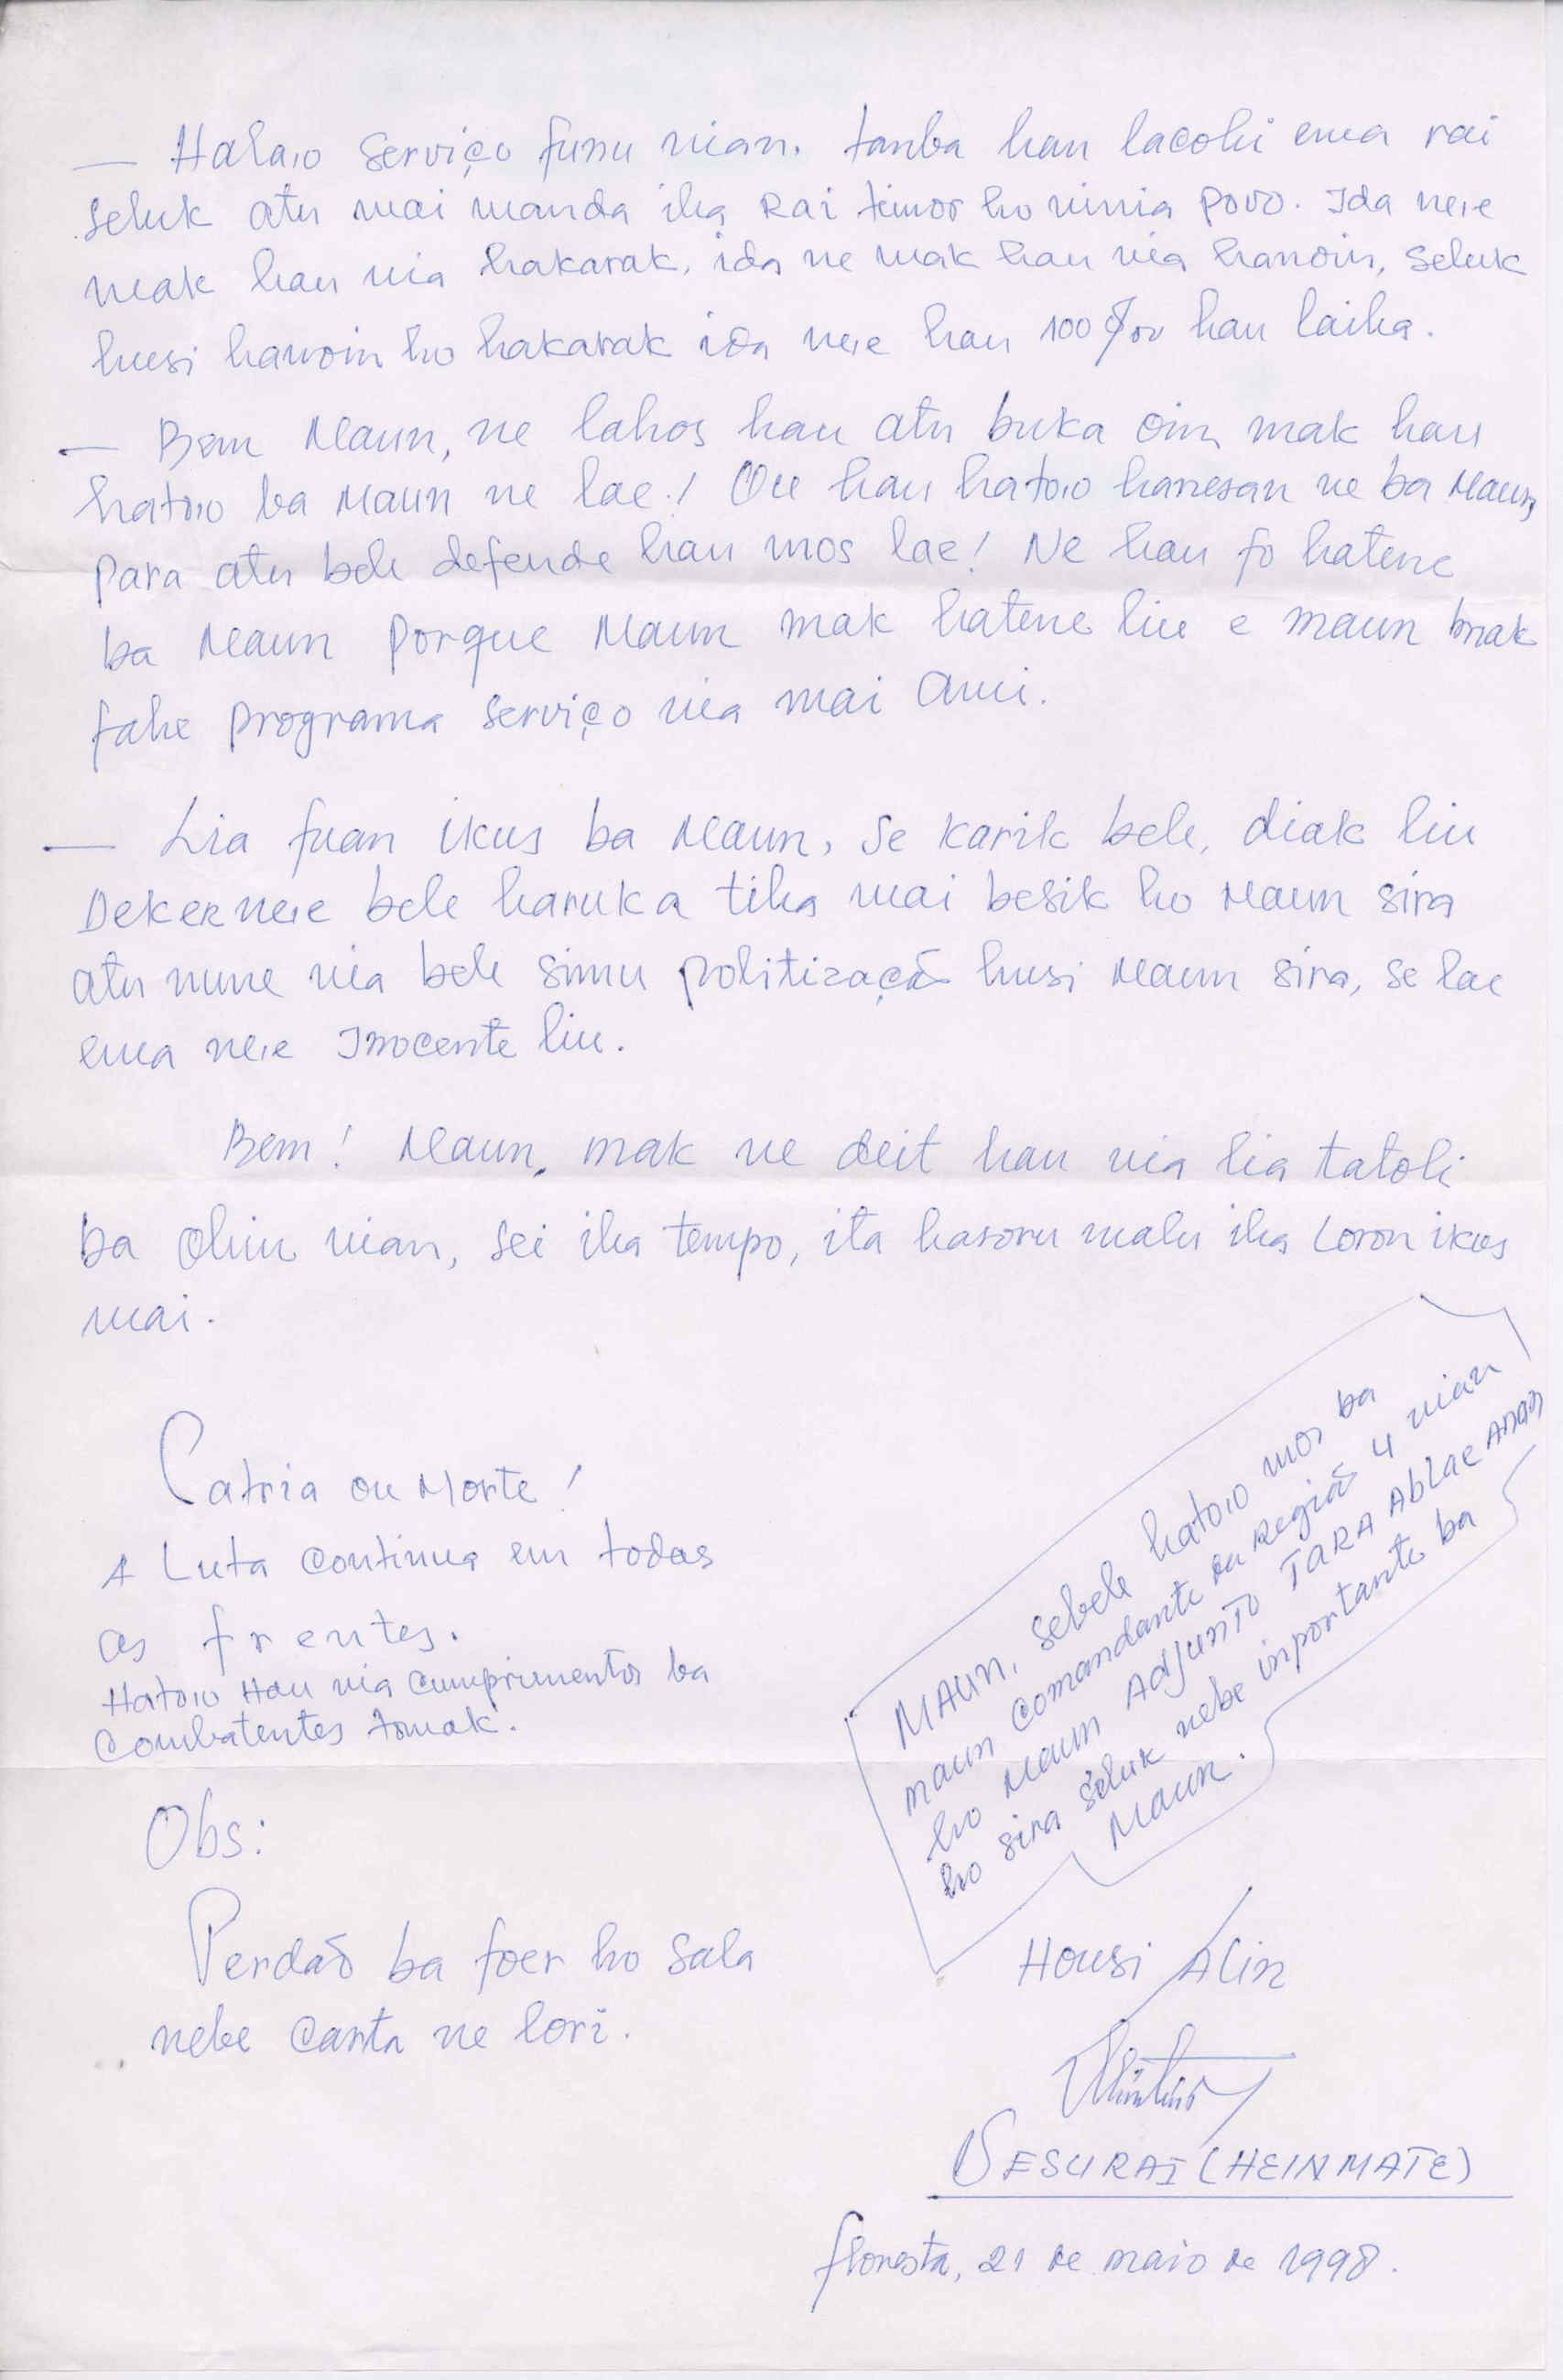 — Hala,o serviço funu nian. tanba hau lacohi ema rai
seluk atu mai manda iha Rai timor ho ninia povo. Ida ne,e
mak hau nia hakarak, ida ne mak hau nia hanoin, seluk
husi hanoin ho hakarak ida ne,e hau 100% hau laiha.
— Bem Maun, ne lahos hau atu buka oin mak hau
hato,o ba Maun ne lae! Ou hau hato,o hanesan ne ba Maun,
para atu bele defende hau mos lae! Ne hau fo hatene
ba Maun porque Maun mak hatene liu e maun mak
fahe programa serviço nia mai ami.
— Lia fuan ikus ba Maun, se karik bele, diak liu
Deker ne,e bele haruka tiha mai besik ho Maun sira
atu nune nia bele simu politização husi Maun sira, se lae
ema ne,e Inocente liu.
Bem! Maun, mak ne deit hau nia lia tatoli
ba ohin nian, sei iha tempo, ita hasoru malu iha loron ikus
mai.
Patria ou Morte!
A Luta continua em todas
as frentes.
Hato,o Hau nia cumprimentos ba
Combatentes tomak.
MAUN, sebele hato,o mos ba
maun comandante da Região 4 nian
ho Maun Adjunto TARA Ablae Anan
ho sira seluk nebe inportante ba
Maun.
Obs:
Perdão ba foer ho sala
nebe carta ne lori.
Housi Alin
BESURAI (HEINMATE)
floresta, 21 de maio de 1998.